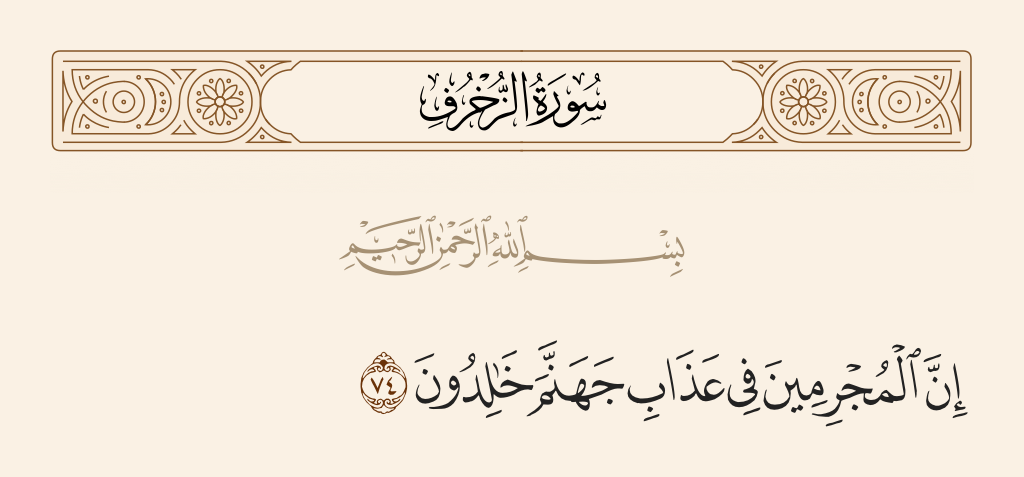 سُورَةُ الزُّخْرُفِ
بِسْمِ ٱللَّهِ ٱلرَّحْمَٰنِ ٱلرَّحِيمِ
إِنَّ ٱلْمُجْرِمِينَ فِى عَذَابِ جَهَنَّمَ خَٰلِدُونَ ٧٤